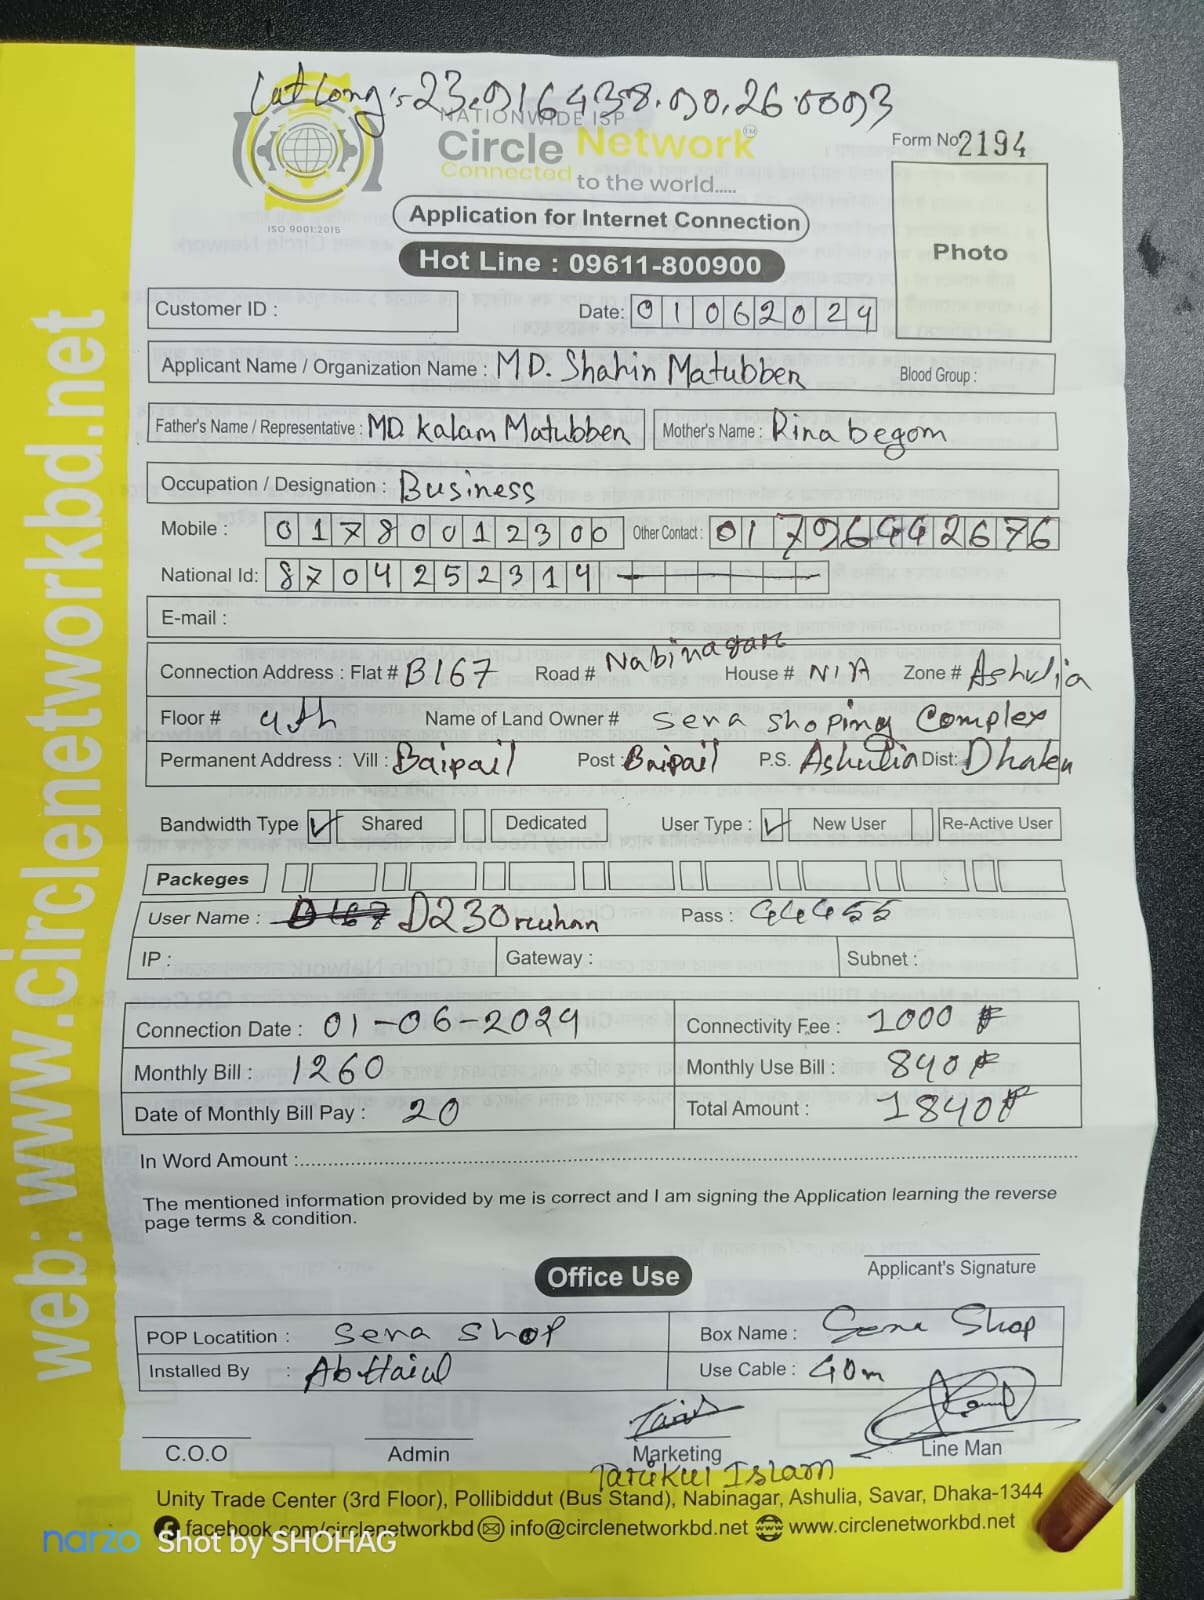 Lat Long's 23.916438.90.26.0093
NATIONWIDE ISP
Circle Network TM
Connected to the world.....
ISO 9001:2015
Form No 2194
Application for Internet Connection
Photo
Hot Line : 09611-800900
Customer ID :
Date: 01062024
Applicant Name / Organization Name : MD. Shahin Matubber
Blood Group :
Father's Name / Representative : MD. Kalam Matubber
Mother's Name : Rina begom
Occupation / Designation : Business
Mobile : 01780012300
Other Contact : 01796442676
National Id: 8704252314
E-mail :
Connection Address : Flat # B167 Road # Nabinagar House # N/A Zone # Ashulia
Floor # 4th Name of Land Owner # Sena Shoping Complex
Permanent Address : Vill : Baipail Post : Baipail P.S. Ashulia Dist: Dhaka
Bandwidth Type Shared Dedicated User Type : New User Re-Active User
Packeges
User Name : D230ruhan Pass : 44455
IP : Gateway : Subnet :
Connection Date : 01-06-2024 Connectivity Fee : 1000
Monthly Bill : 1260 Monthly Use Bill : 840
Date of Monthly Bill Pay : 20 Total Amount : 1840
In Word Amount :
The mentioned information provided by me is correct and I am signing the Application learning the reverse
page terms & condition.
Applicant's Signature
Office Use
POP Locatition : Sena Shop Box Name : Sena Shop
Installed By : Ab Haiul Use Cable : 40m
C.O.O Admin Marketing Line Man
Tarikul Islam
Unity Trade Center (3rd Floor), Pollibiddut (Bus Stand), Nabinagar, Ashulia, Savar, Dhaka-1344
facebook.com/circlenetworkbd info@circlenetworkbd.net www.circlenetworkbd.net
web: www.circlenetworkbd.net
narzo Shot by SHOHAG